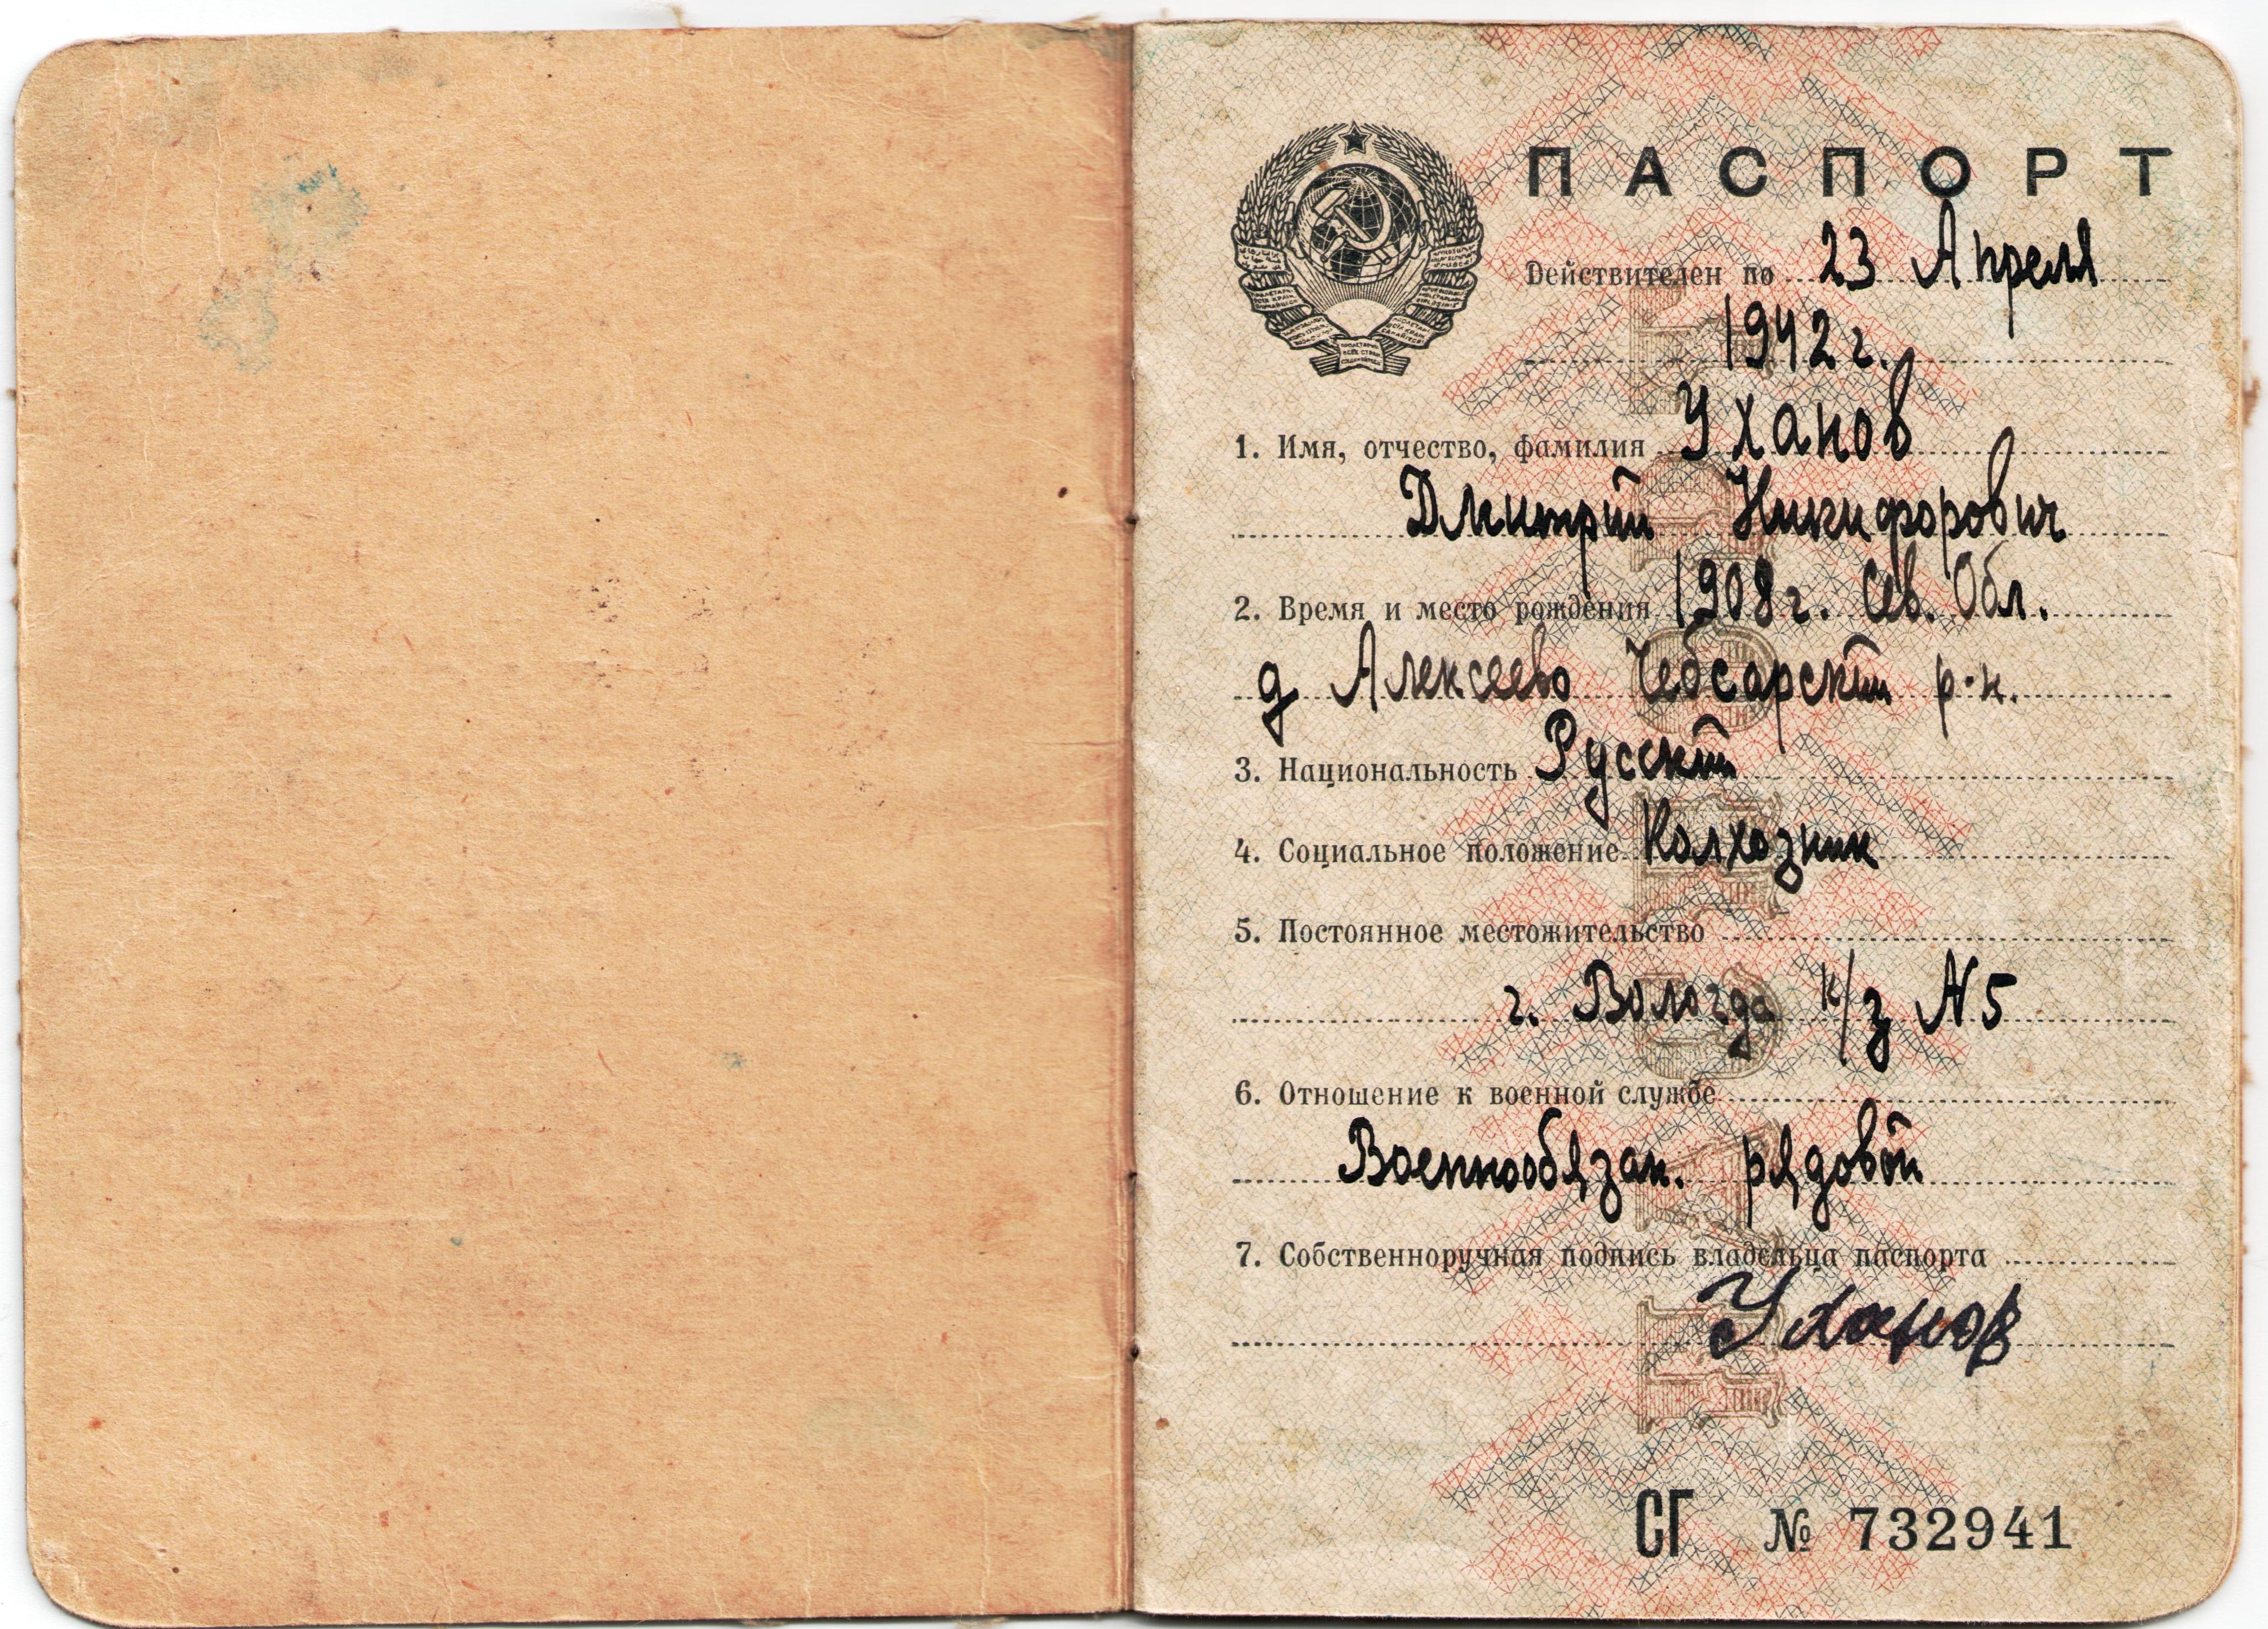 ПАСПОРТ
Действителен по 23 Апреля
1942 г.
1. Имя, отчество, фамилия Уханов
Дмитрий Никифорович
2. Время и место рождения 1908 г. Сев. Обл.
д Алексеево Чебсарский р-н.
3. Национальность Русский
4. Социальное положение Колхозник
5. Постоянное местожительство
г. Вологда к/з N 5
6. Отношение к военной службе
Военнообязан. рядовой
7. Собственноручная подпись владельца паспорта
Уханов
СГ № 732941